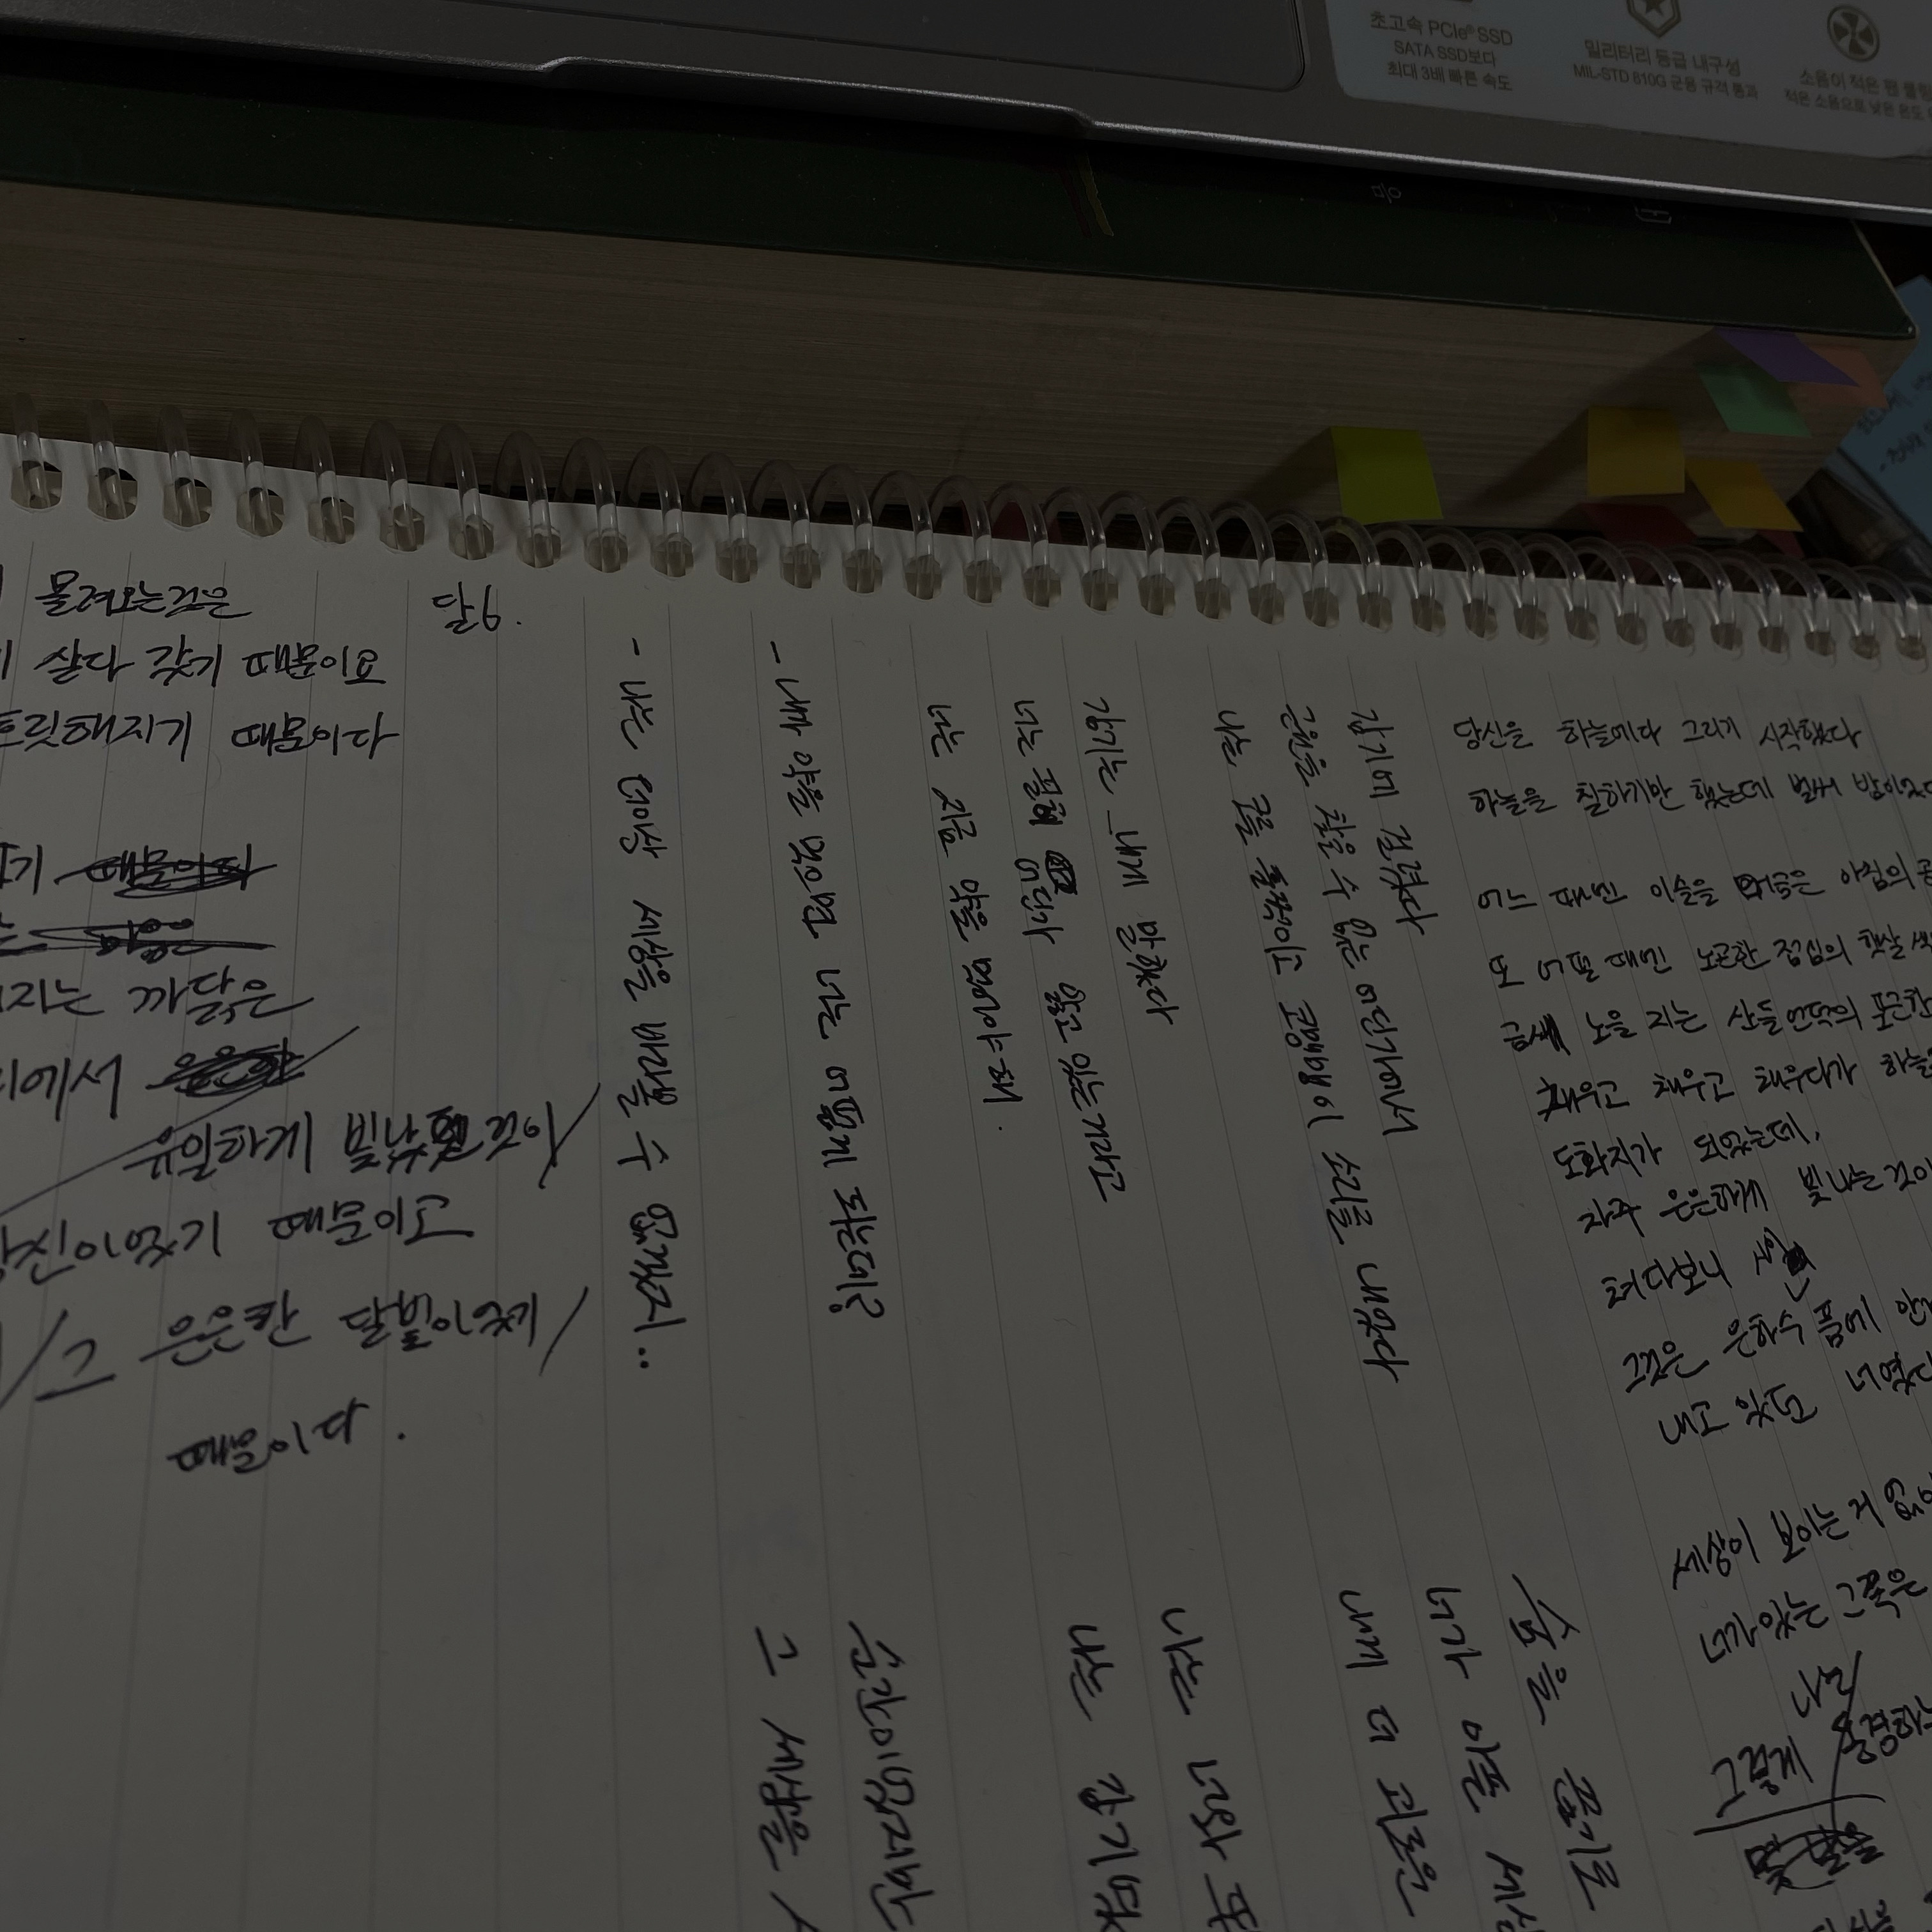 초고속 PCIe® SSD
SATA SSD보다
최대 3배 빠른 속도
밀리터리 등급 내구성
MIL-STD 810G 군용 규격 통과
소음이 적은 팬
적은 소음으로 낮은 온도
몰려오는것은
살다 갔기 때문이요
해지기 때문이다
기 때문이다
지는 까닭은
에서
유일하게 빛났 것이
당신이었기 때문이고
그 은은한 달빛이었기
때문이다.
달6.
감기에 걸렸다
근원을 찾을 수 없는 어딘가에서
나는 코를 훌쩍이고 곰팡이 소리를 내었다
감기는 내게 말했다
너는 분명 어딘가 앓고 있는거라고
너는 지금 약을 먹어야 해.
- 내가 약을 먹으면 너는 어떻게 되는데?
- 나는 더이상 세상을 바라볼 수 없겠지..
당신을 하늘에다 그리기 시작했다
하늘을 칠하기만 했는데 벌써 밤이었다
어느 때엔 이슬을 머금은 아침의
또 어떨 때엔 노곤한 점심의 햇살
금새 노을 지는 산들 언덕의 포근한
채우고 채우고 채우다가 하늘
도화지가 되었는데,
자꾸 은은하게 빛나는 것이
쳐다보니
그것은 은하수 품에 안
내고 있던 너였다
세상이 보이는 게 없
너가 있는 그쪽은
나의
그렇게 동경하는
숨을 끊기로
너가 아픈 세상
내게 더 괴로운
나는 너와
나는 감기
순간이었지만
그 세상을